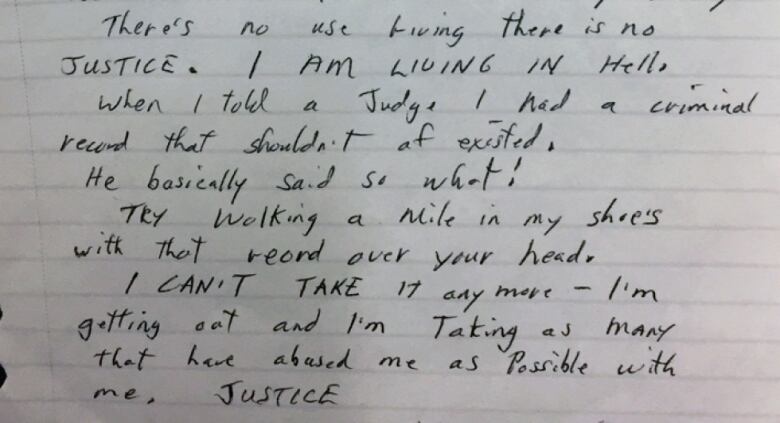 There's no use living there is no
JUSTICE. I AM LIVING IN Hell.
When I told a Judge I had a criminal
record that shouldn't of existed.
He basically said so what!
TRY Walking a Mile in my shoe's
with that reord over your head.
I CAN'T TAKE IT any more - I'm
getting out and I'm Taking as many
that have abused me as Possible with
me. JUSTICE